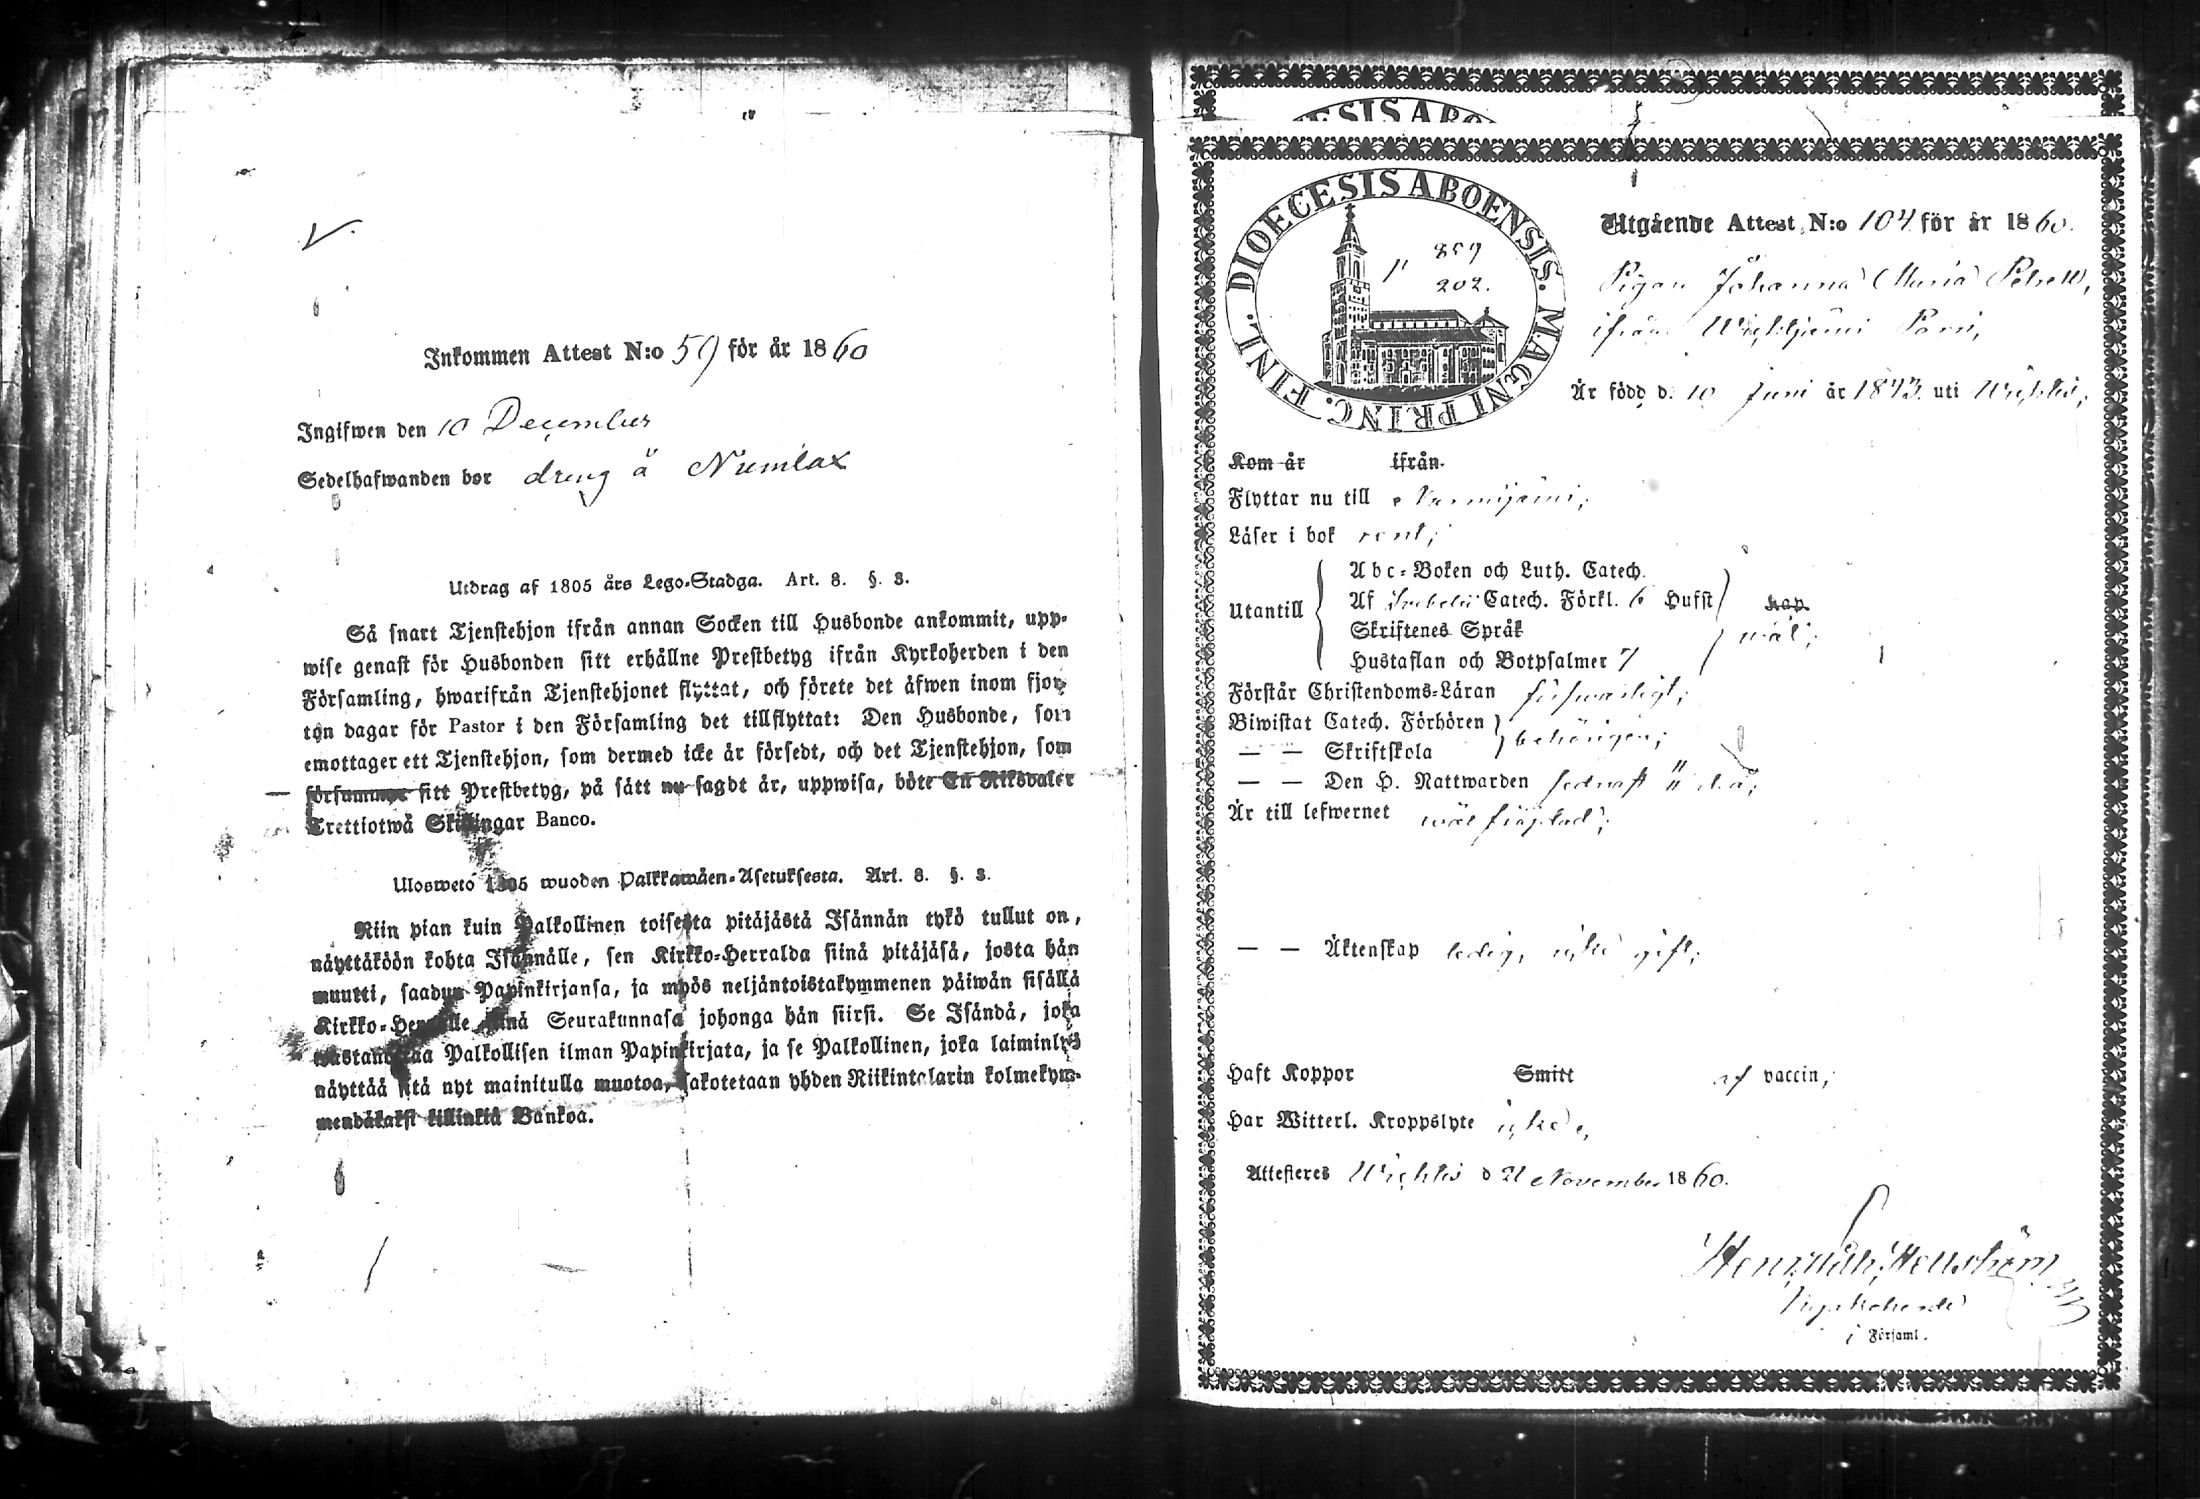 Inkommen Attest N:o 59 för år 1860
Ingifwen den 10 December
Sedelhafwanden bor dreng å Numlax
Utdrag af 1805 års Lego-Stadga. Art. 8. §. 3.
Så snart Tjenstehjon ifrån annan Socken till Husbonde ankommit, upp-
wise genast för Husbonden sitt erhållne Prestbetyg ifrån Kyrkoherden i den
Församling, hwarifrån Tjenstehjonet flyttat, och förete det äfwen inom fjor-
ton dagar för Pastor i den Församling det tillflyttat: Den Husbonde, som
emottager ett Tjenstehjon, som dermed icke är försedt, och det Tjenstehjon, som
försummar sitt Prestbetyg, på sätt nu sagdt är, uppwisa, böte En Riksdaler
Trettiotwå Skillingar Banco.
Ulosweto 1805 wuoden Palkkawäen-Asetuksesta. Art. 8. §. 3.
Niin pian kuin Palkollinen toisesta pitäjästä Isännän tykö tullut on,
näyttäköön kohta Isännälle, sen Kirkko-Herralda siinä pitäjäsä, josta hän
muutti, saadun Papinkirjansa, ja myös neljäntoistakymmenen päiwän sisällä
Kirkko-Herralle siinä Seurakunnasa johonga hän siirsi. Se Isändä, joka
wastanottaa Palkollisen ilman Papinkirjata, ja se Palkollinen, joka laiminlyö
näyttää sitä nyt mainitulla muotoa, sakotetaan yhden Riikintalarin kolmekym-
mendäkaksi killinkiä Bankoa.
DIOECESIS ABOENSIS. MAGNI PRINC. FINL.
p 859
202.
Utgående Attest N:o 104 för år 1860.
Pigan Johanna Maria
ifrån Wichtijärvi
Är född d. 10 Juni år 1843 uti Wichtis,
Kom år ifrån
Flyttar nu till Nurmijärvi;
Läser i bok rent;
Utantill
Abc-Boken och Luth. Catech.
Af Svebelii Catech. Förkl. 6 Hufst
Skriftenes Språk
Hustaflan och Botpsalmer 7
kap.
wäl;
Förstår Christendoms-Läran försvarligt;
Biwistat Catech. Förhören
— — Skriftskola
behörigen;
— — Den H. Nattwarden sednast
Är till lefwernet wäl frägdad;
— — Äktenskap ledig, icke gift;
Haft Koppor Smitt af vaccin;
Har Witterl. Kroppslyte icke,
Attesteres Wichtis d 21 November 1860.
Henrik Hellström
Kyrkoherde
i Församl.